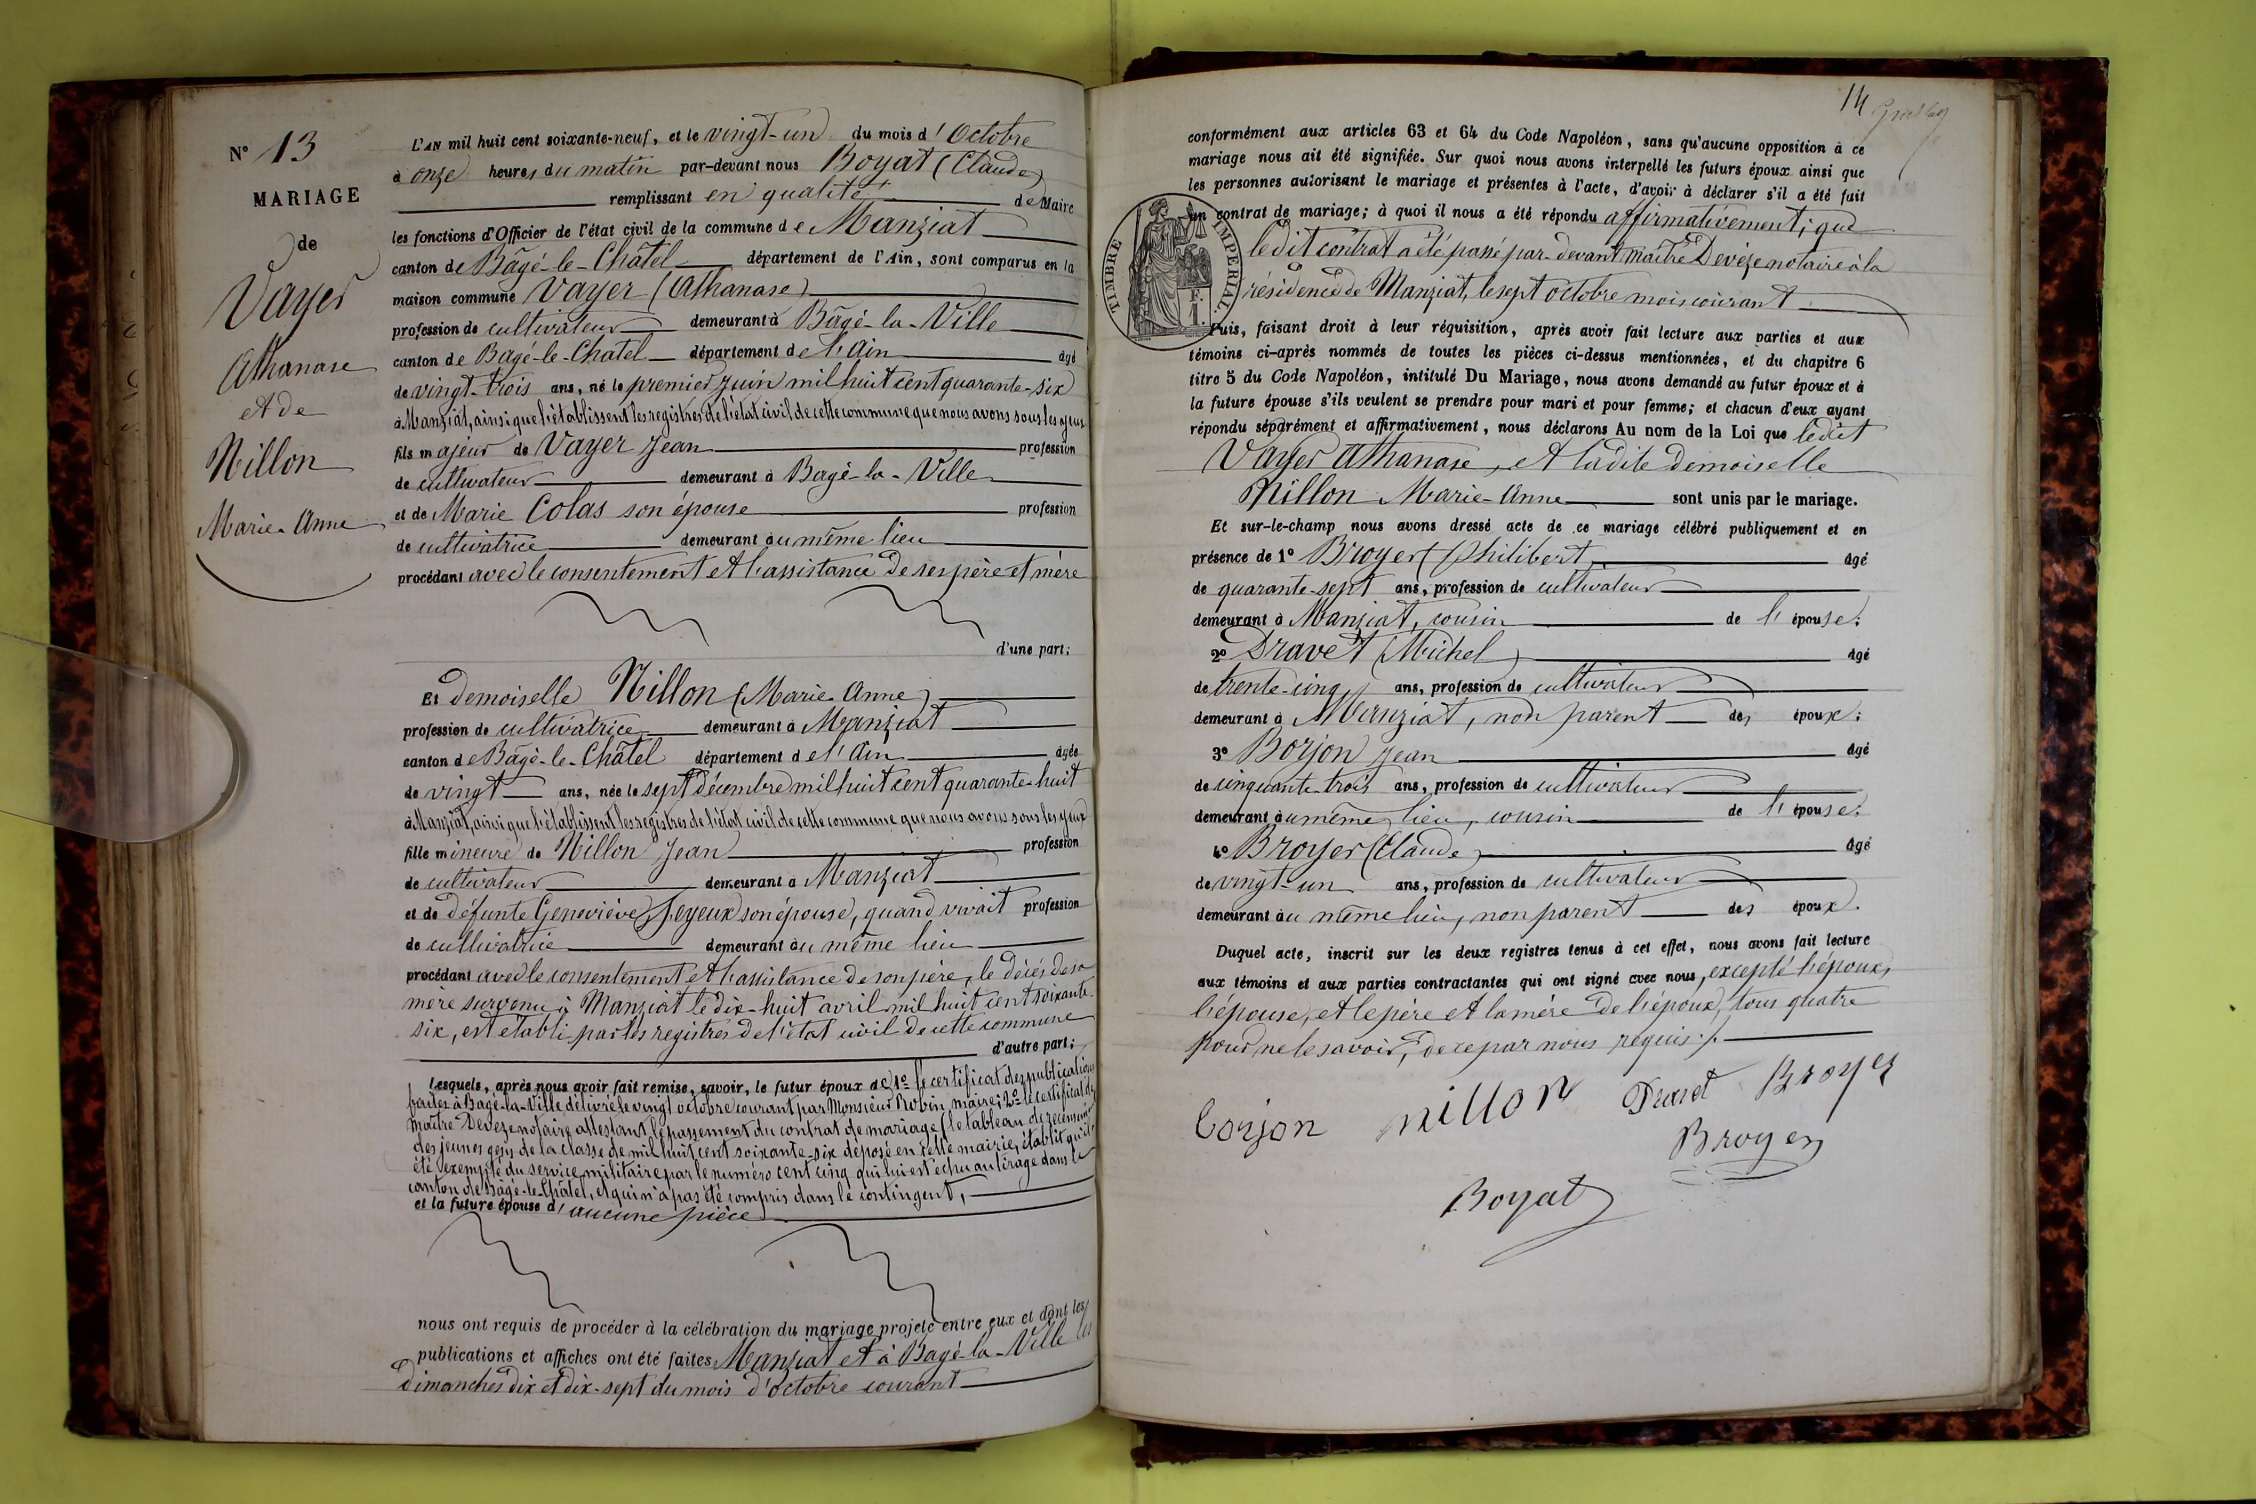 N° 13
MARIAGE
de
Vayer
Athanase
et de
Nillon
Marie-Anne
L'AN mil huit cent soixante-neuf, et le vingt-un du mois d'Octobre
à onze heures du matin par-devant nous Boyat (Claude)
remplissant en qualité de Maire
les fonctions d'Officier de l'état civil de la commune de Manziat
canton de Bâgé-le-Châtel département de l'Ain, sont comparus en la
maison commune Vayer (Athanase)
profession de cultivateur demeurant à Bâgé-la-Ville
canton de Bagé-le-Chatel département de l'Ain âgé
de vingt-trois ans, né le premier juin mil huit cent quarante-six
à Manziat, ainsi que l'établissent les registres de l'état civil de cette commune que nous avons sous les yeux
fils majeur de Vayer Jean profession
de cultivateur demeurant à Bagé-la-Ville
et de Marie Colas son épouse profession
de cultivatrice demeurant au même lieu
procédant avec le consentement et l'assistance de ses père et mère
d'une part;
Et demoiselle Nillon (Marie-Anne)
profession de cultivatrice demeurant à Manziat
canton de Bâgé-le-Châtel département de l'Ain âgée
de vingt ans, née le sept décembre mil huit cent quarante-huit
à Manziat, ainsi que l'établissent les registres de l'état civil de cette commune que nous avons sous les yeux
fille mineure de Nillon Jean profession
de cultivateur demeurant à Manziat
et de défunte Geneviève Feyeux son épouse, quand vivait profession
de cultivatrice demeurant au même lieu
procédant avec le consentement et l'assistance de son père, le décès de sa
mère survenu à Manziat le dix-huit avril mil huit cent soixante-
six, est établi par les registres de l'état civil de cette commune
d'autre part;
Lesquels, après nous avoir fait remise, savoir, le futur époux de 1° le certificat des publications
faites à Bagé-la-Ville délivré le vingt octobre courant par Monsieur Robin, maire; 2° le certificat de
maître Devèze notaire attestant le passement du contrat de mariage (le tableau de recensement
des jeunes gens de la classe de mil huit cent soixante-six déposé en cette mairie, établit qu'il a
été exempté du service militaire par le numéro cent cinq qui lui est échu au tirage dans le
canton de Bâgé-le-Châtel, et qui n'a pas été compris dans le contingent,
et la future épouse d'aucune pièce
nous ont requis de procéder à la célébration du mariage projeté entre eux et dont les
publications et affiches ont été faites à Manziat et à Bagé-la-Ville les
dimanches dix et dix-sept du mois d'octobre courant
14
conformément aux articles 63 et 64 du Code Napoléon, sans qu'aucune opposition à ce
mariage nous ait été signifiée. Sur quoi nous avons interpellé les futurs époux ainsi que
les personnes autorisant le mariage et présentes à l'acte, d'avoir à déclarer s'il a été fait
un contrat de mariage; à quoi il nous a été répondu affirmativement; que
ledit contrat a été passé par-devant maître Devèze notaire à la
résidence de Manziat, le sept octobre mois courant
TIMBRE IMPÉRIAL.
1 F.
Puis, faisant droit à leur réquisition, après avoir fait lecture aux parties et aux
témoins ci-après nommés de toutes les pièces ci-dessus mentionnées, et du chapitre 6
titre 5 du Code Napoléon, intitulé Du Mariage, nous avons demandé au futur époux et à
la future épouse s'ils veulent se prendre pour mari et pour femme; et chacun d'eux ayant
répondu séparément et affirmativement, nous déclarons Au nom de la Loi que ledit
Vayer Athanase, et ladite demoiselle
Nillon Marie-Anne sont unis par le mariage.
Et sur-le-champ nous avons dressé acte de ce mariage célébré publiquement et en
présence de 1° Broyer (Philibert) âgé
de quarante-sept ans, profession de cultivateur
demeurant à Manziat, cousin de l'épouse;
2° Dravet (Michel) âgé
de trente-cinq ans, profession de cultivateur
demeurant à Manziat, non parent des époux;
3° Borjon Jean âgé
de cinquante-trois ans, profession de cultivateur
demeurant au même lieu, cousin de l'épouse;
4° Broyer (Claude) âgé
de vingt-un ans, profession de cultivateur
demeurant au même lieu, non parent des époux.
Duquel acte, inscrit sur les deux registres tenus à cet effet, nous avons fait lecture
aux témoins et aux parties contractantes qui ont signé avec nous, excepté l'époux,
l'épouse, et le père et la mère de l'époux, tous quatre
pour ne le savoir, de ce par nous requis ./.
borjon nillon Dravet Broyer
Broyer
Boyat